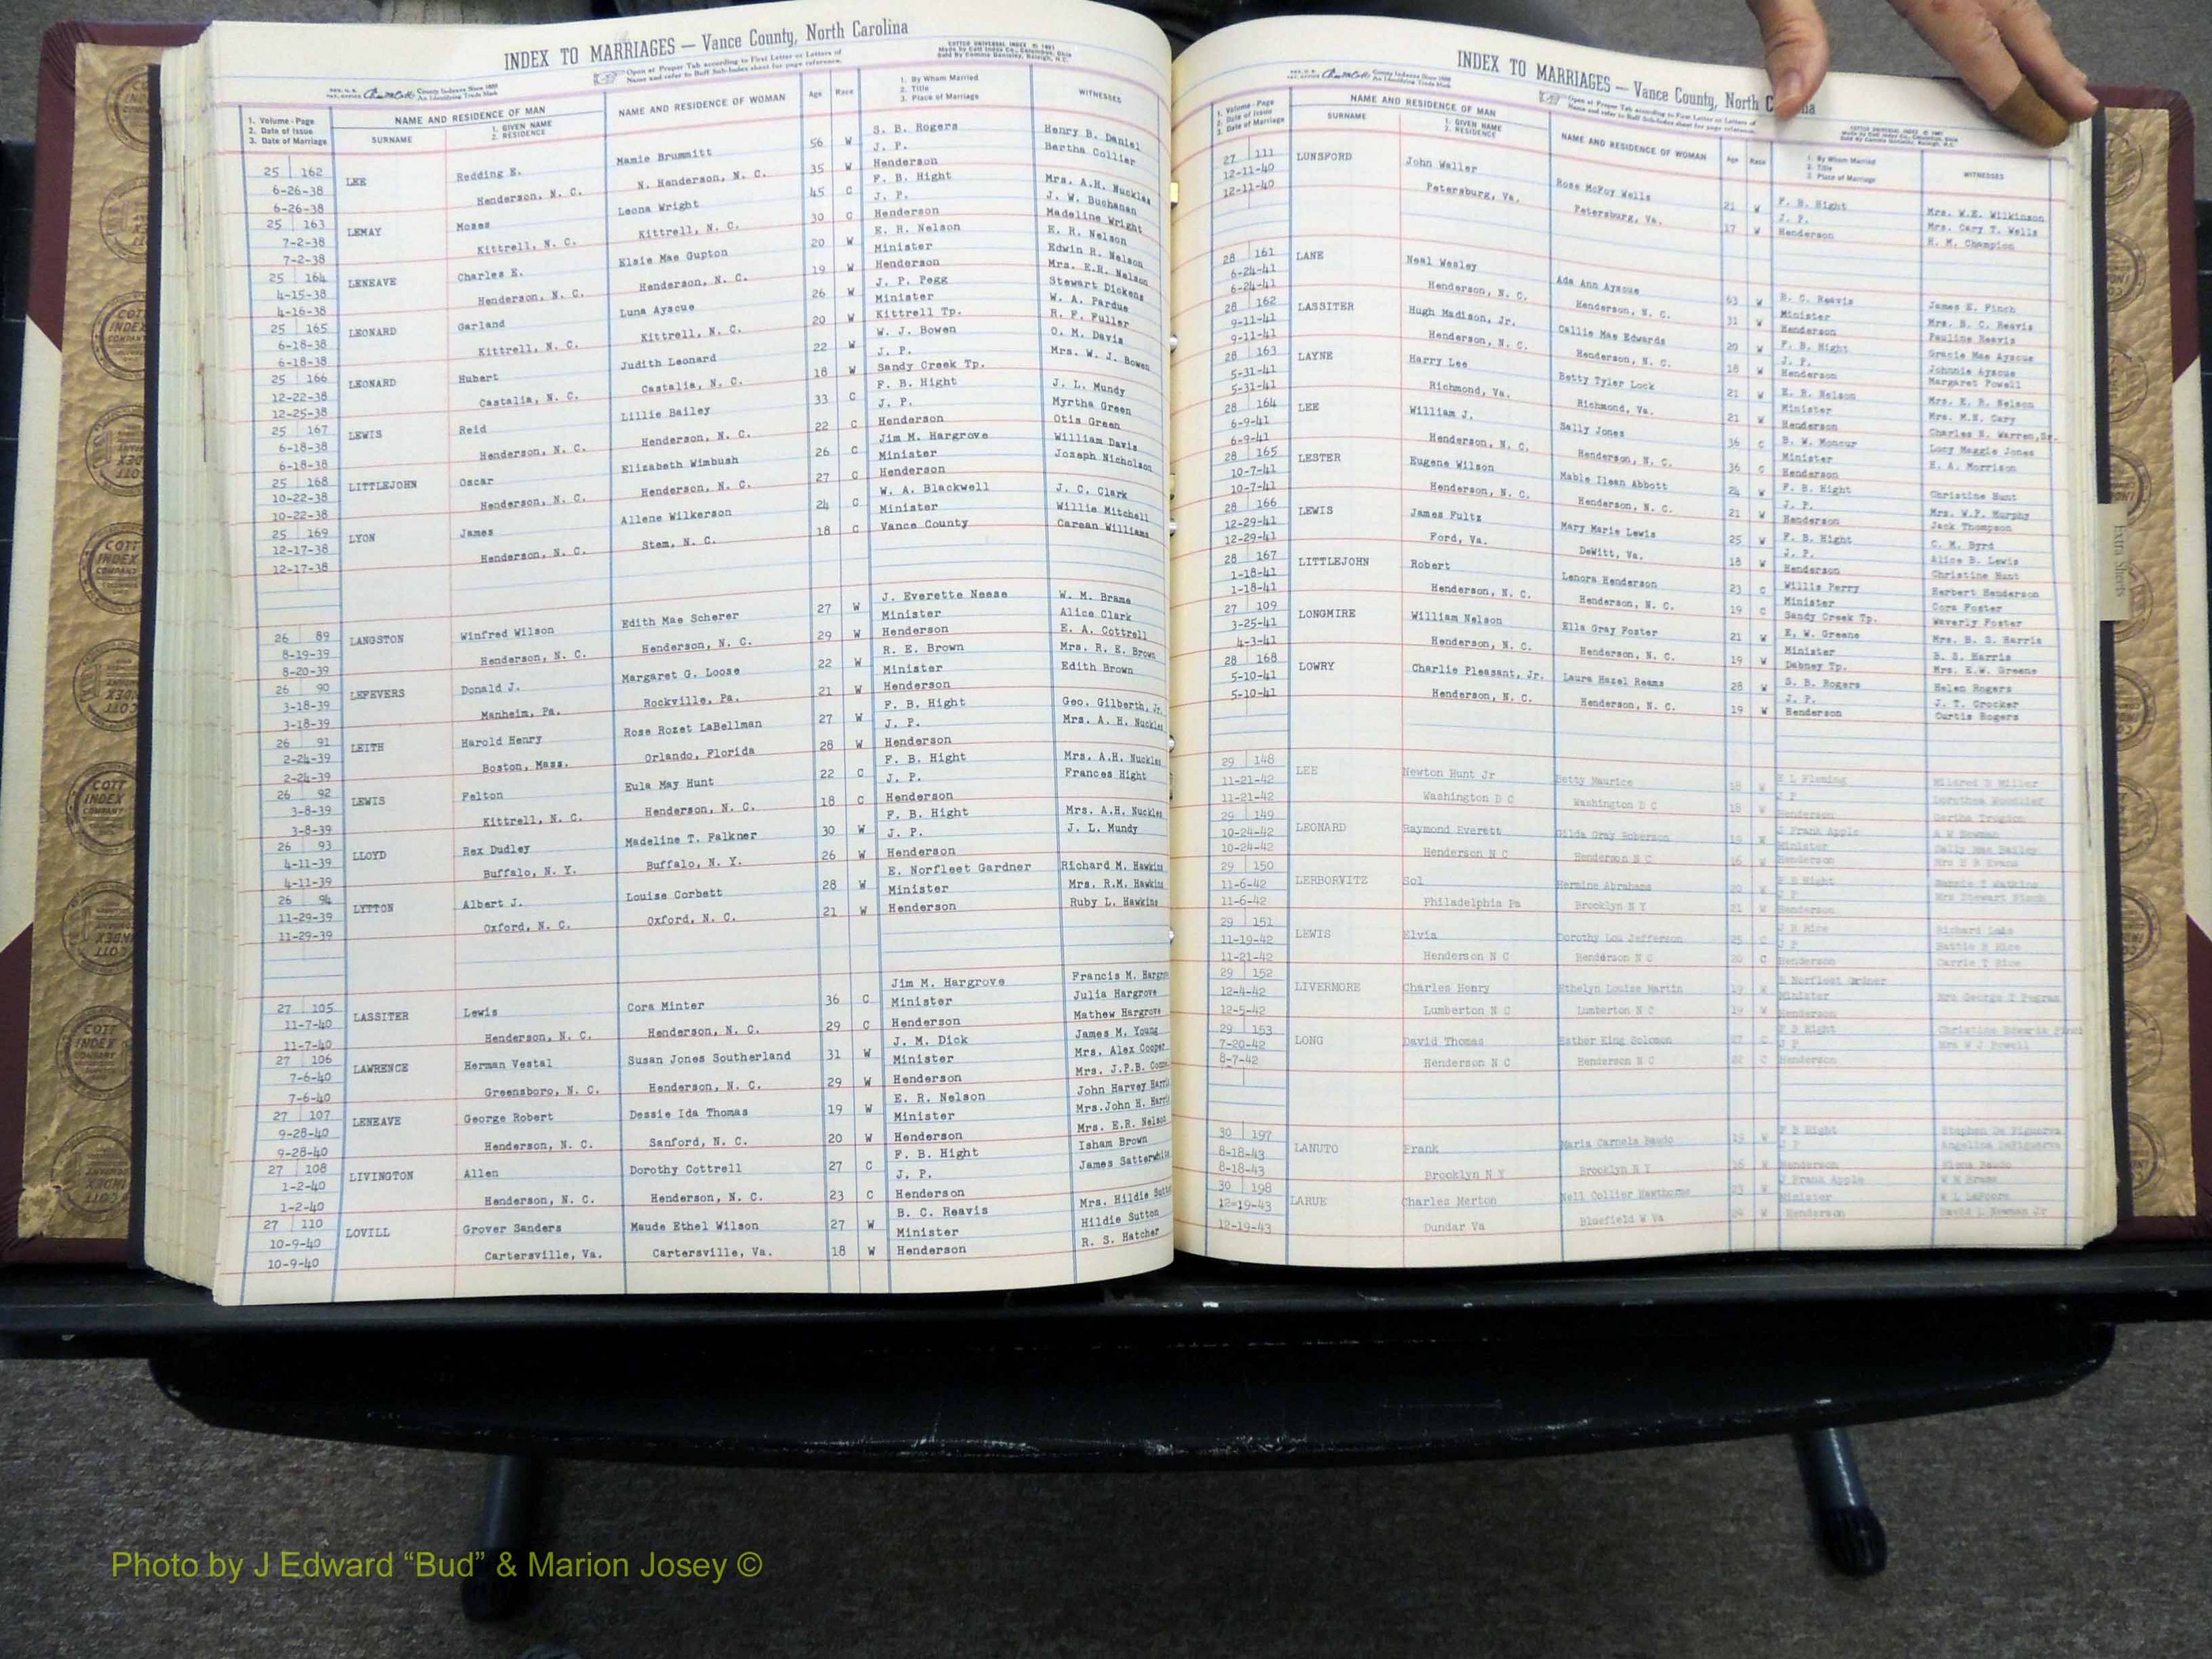 INDEX TO MARRIAGES — Vance County, North Carolina
Open at Proper Tab according to First Letter or Letters of
Name and refer to Buff Sub-Index sheet for page reference.
County Indexes Since 1888
An Identifying Trade Mark
COTTCO UNIVERSAL INDEX
1. Volume - Page
2. Date of Issue
3. Date of Marriage
NAME AND RESIDENCE OF MAN
SURNAME
1. GIVEN NAME
2. RESIDENCE
NAME AND RESIDENCE OF WOMAN
Age Race
1. By Whom Married
2. Title
3. Place of Marriage
WITNESSES
25 162 LEE Redding E. Mamie Brummitt 56 W S. B. Rogers Henry B. Daniel
6-26-38 Henderson, N. C. N. Henderson, N. C. 35 W J. P. Bertha Collier
6-26-38 Henderson
25 163 LEMAY Moses Leona Wright 45 C F. B. Hight Mrs. A.H. Nuckles
7-2-38 Kittrell, N. C. Kittrell, N. C. 30 C J. P. J. W. Buchanan
7-2-38 Henderson Madeline Wright
25 164 LENEAVE Charles E. Elsie Mae Gupton 20 W E. R. Nelson E. R. Nelson
4-15-38 Henderson, N. C. Henderson, N. C. 19 W Minister Edwin R. Nelson
4-16-38 Henderson Mrs. E.R. Nelson
25 165 LEONARD Garland Luna Ayscue 26 W J. P. Pegg Stewart Dickens
6-18-38 Kittrell, N. C. Kittrell, N. C. 20 W Minister W. A. Pardue
6-18-38 Kittrell Tp. R. F. Fuller
25 166 LEONARD Hubert Judith Leonard 22 W W. J. Bowen O. M. Davis
12-22-38 Castalia, N. C. Castalia, N. C. 18 W J. P. Mrs. W. J. Bowen
12-25-38 Sandy Creek Tp.
25 167 LEWIS Reid Lillie Bailey 33 C F. B. Hight J. L. Mundy
6-18-38 Henderson, N. C. Henderson, N. C. 22 C J. P. Myrtha Green
6-18-38 Henderson Otis Green
25 168 LITTLEJOHN Oscar Elizabeth Wimbush 26 C Jim M. Hargrove William Davis
10-22-38 Henderson, N. C. Henderson, N. C. 27 C Minister Joseph Nicholson
10-22-38 Henderson
25 169 LYON James Allene Wilkerson 24 C W. A. Blackwell J. C. Clark
12-17-38 Henderson, N. C. Stem, N. C. 18 C Minister Willie Mitchell
12-17-38 Vance County Carean Williams
26 89 LANGSTON Winfred Wilson Edith Mae Scherer 27 W J. Everette Neese W. M. Brame
8-19-39 Henderson, N. C. Henderson, N. C. 29 W Minister Alice Clark
8-20-39 Henderson E. A. Cottrell
26 90 LEFEVERS Donald J. Margaret G. Loose 22 W R. E. Brown Mrs. R. E. Brown
3-18-39 Manheim, Pa. Rockville, Pa. 21 W Minister Edith Brown
3-18-39 Henderson
26 91 LEITH Harold Henry Rose Rozet LaBellman 27 W F. B. Hight Geo. Gilberth, Jr.
2-24-39 Boston, Mass. Orlando, Florida 28 W J. P. Mrs. A. H. Nuckles
2-24-39 Henderson
26 92 LEWIS Felton Eula May Hunt 22 C F. B. Hight Mrs. A.H. Nuckles
3-8-39 Kittrell, N. C. Henderson, N. C. 18 C J. P. Frances Hight
3-8-39 Henderson
26 93 LLOYD Rex Dudley Madeline T. Falkner 30 W F. B. Hight Mrs. A.H. Nuckles
4-11-39 Buffalo, N. Y. Buffalo, N. Y. 26 W J. P. J. L. Mundy
4-11-39 Henderson
26 94 LYTTON Albert J. Louise Corbett 28 W E. Norfleet Gardner Richard M. Hawkins
11-29-39 Oxford, N. C. Oxford, N. C. 21 W Minister Mrs. R.M. Hawkins
11-29-39 Henderson Ruby L. Hawkins
27 105 LASSITER Lewis Cora Minter 36 C Jim M. Hargrove Francis M.
11-7-40 Henderson, N. C. Henderson, N. C. 29 C Minister Julia Hargrove
11-7-40 Henderson Mathew Hargrove
27 106 LAWRENCE Herman Vestal Susan Jones Southerland 31 W J. M. Dick James M. Young
7-6-40 Greensboro, N. C. Henderson, N. C. 29 W Minister Mrs. Alex Cooper
7-6-40 Henderson Mrs. J.P.B.
27 107 LENEAVE George Robert Dessie Ida Thomas 19 W E. R. Nelson John Harvey
9-28-40 Henderson, N. C. Sanford, N. C. 20 W Minister Mrs.John H.
9-28-40 Henderson Mrs. E.R. Nelson
27 108 LIVINGTON Allen Dorothy Cottrell 27 C F. B. Hight Isham Brown
1-2-40 Henderson, N. C. Henderson, N. C. 23 C J. P. James
1-2-40 Henderson
27 110 LOVILL Grover Sanders Maude Ethel Wilson 27 W B. C. Reavis Mrs. Hildie Sutton
10-9-40 Cartersville, Va. Cartersville, Va. 18 W Minister Hildie Sutton
10-9-40 Henderson R. S. Hatcher
INDEX TO MARRIAGES — Vance County, North C ina
Open at Proper Tab according to First Letter or Letters of
Name and refer to Buff Sub-Index sheet for page reference.
County Indexes Since 1888
An Identifying Trade Mark
1. Volume - Page
2. Date of Issue
3. Date of Marriage
NAME AND RESIDENCE OF MAN
SURNAME
1. GIVEN NAME
2. RESIDENCE
NAME AND RESIDENCE OF WOMAN
Age Race
1. By Whom Married
2. Title
3. Place of Marriage
WITNESSES
27 111 LUNSFORD John Waller Rose McFoy Wells 21 W F. B. Hight Mrs. W.E. Wilkinson
12-11-40 Petersburg, Va. Petersburg, Va. 17 W J. P. Mrs. Cary T. Wells
12-11-40 Henderson H. M. Champion
28 161 LANE Neal Wesley Ada Ann Ayscue 63 W B. C. Reavis James E. Finch
6-24-41 Henderson, N. C. Henderson, N. C. 31 W Minister Mrs. B. C. Reavis
6-24-41 Henderson Pauline Reavis
28 162 LASSITER Hugh Madison, Jr. Callie Mae Edwards 20 W F. B. Hight Gracie Mae Ayscue
9-11-41 Henderson, N. C. Henderson, N. C. 18 W J. P. Johnnie Ayscue
9-11-41 Henderson Margaret Powell
28 163 LAYNE Harry Lee Betty Tyler Lock 21 W E. R. Nelson Mrs. E. R. Nelson
5-31-41 Richmond, Va. Richmond, Va. 21 W Minister Mrs. M.N. Cary
5-31-41 Henderson Charles N. Warren,Sr.
28 164 LEE William J. Sally Jones 36 C B. W. Moncur Lucy Maggie Jones
6-9-41 Henderson, N. C. Henderson, N. C. 36 C Minister E. A. Morrison
6-9-41 Henderson
28 165 LESTER Eugene Wilson Mable Ilean Abbott 24 W F. B. Hight Christine Hunt
10-7-41 Henderson, N. C. Henderson, N. C. 21 W J. P. Mrs. W.P. Murphy
10-7-41 Henderson Jack Thompson
28 166 LEWIS James Fultz Mary Marie Lewis 25 W F. B. Hight C. M. Byrd
12-29-41 Ford, Va. DeWitt, Va. 18 W J. P. Alice B. Lewis
12-29-41 Henderson Christine Hunt
28 167 LITTLEJOHN Robert Lenora Henderson 23 C Willis Perry Herbert Henderson
1-18-41 Henderson, N. C. Henderson, N. C. 19 C Minister Cora Foster
1-18-41 Sandy Creek Tp. Waverly Foster
27 109 LONGMIRE William Nelson Ella Gray Foster 21 W E. W. Greene Mrs. B. S. Harris
3-25-41 Henderson, N. C. Henderson, N. C. 19 W Minister B. S. Harris
4-3-41 Dabney Tp. Mrs. E.W. Greene
28 168 LOWRY Charlie Pleasant, Jr. Laura Hazel Reams 28 W S. B. Rogers Helen Rogers
5-10-41 Henderson, N. C. Henderson, N. C. 19 W J. P. J. T. Crocker
5-10-41 Henderson Curtis Rogers
29 148 LEE Newton Hunt Jr Betty Maurice 18 W Fleming Mildred B Miller
11-21-42 Washington D C Washington D C 18 W J P Dorothea Woodlief
11-21-42 Henderson
29 149 LEONARD Raymond Everett Gilda Gray Roberson 19 W J Frank Apple A W Newman
10-24-42 Henderson N C Henderson N C 16 W Minister Sally Mae Bailey
10-24-42 Henderson Mrs Evans
29 150 LERBORVITZ Sol Hermine Abrahams 20 W F B Hight Watkins
11-6-42 Philadelphia Pa Brooklyn N Y 21 W J P Mrs Stewart Finch
11-6-42 Henderson
29 151 LEWIS Elvis Dorothy Lou Jefferson 25 C J H Rice Richard
11-19-42 Henderson N C Henderson N C 20 C J P Hattie H Rice
11-21-42 Henderson Carrie T Rice
29 152 LIVERMORE Charles Henry Ethelyn Louise Martin 19 W E Norfleet
12-4-42 Lumberton N C Lumberton N C 19 W Minister Mrs George T Pegram
12-5-42 Henderson
29 153 LONG David Thomas Esther King Solomon C F B Hight Christine Edwards
7-20-42 Henderson N C Henderson N C C J P Mrs W J Powell
8-7-42 Henderson
30 197 LANUTO Frank Maria Carmela Baudo 19 W F B Hight Stephen De
8-18-43 Brooklyn N Y Brooklyn N Y 16 W J P Angelina
8-18-43 Henderson
30 198 LARUE Charles Merton Nell Collier Hawthorne 23 W J Frank Apple W H Brame
12-19-43 Dundar Va Bluefield W Va W Minister W L
12-19-43 Henderson David L Newman Jr
Extra Sheets
COTT INDEX COMPANY
Photo by J Edward “Bud” & Marion Josey ©